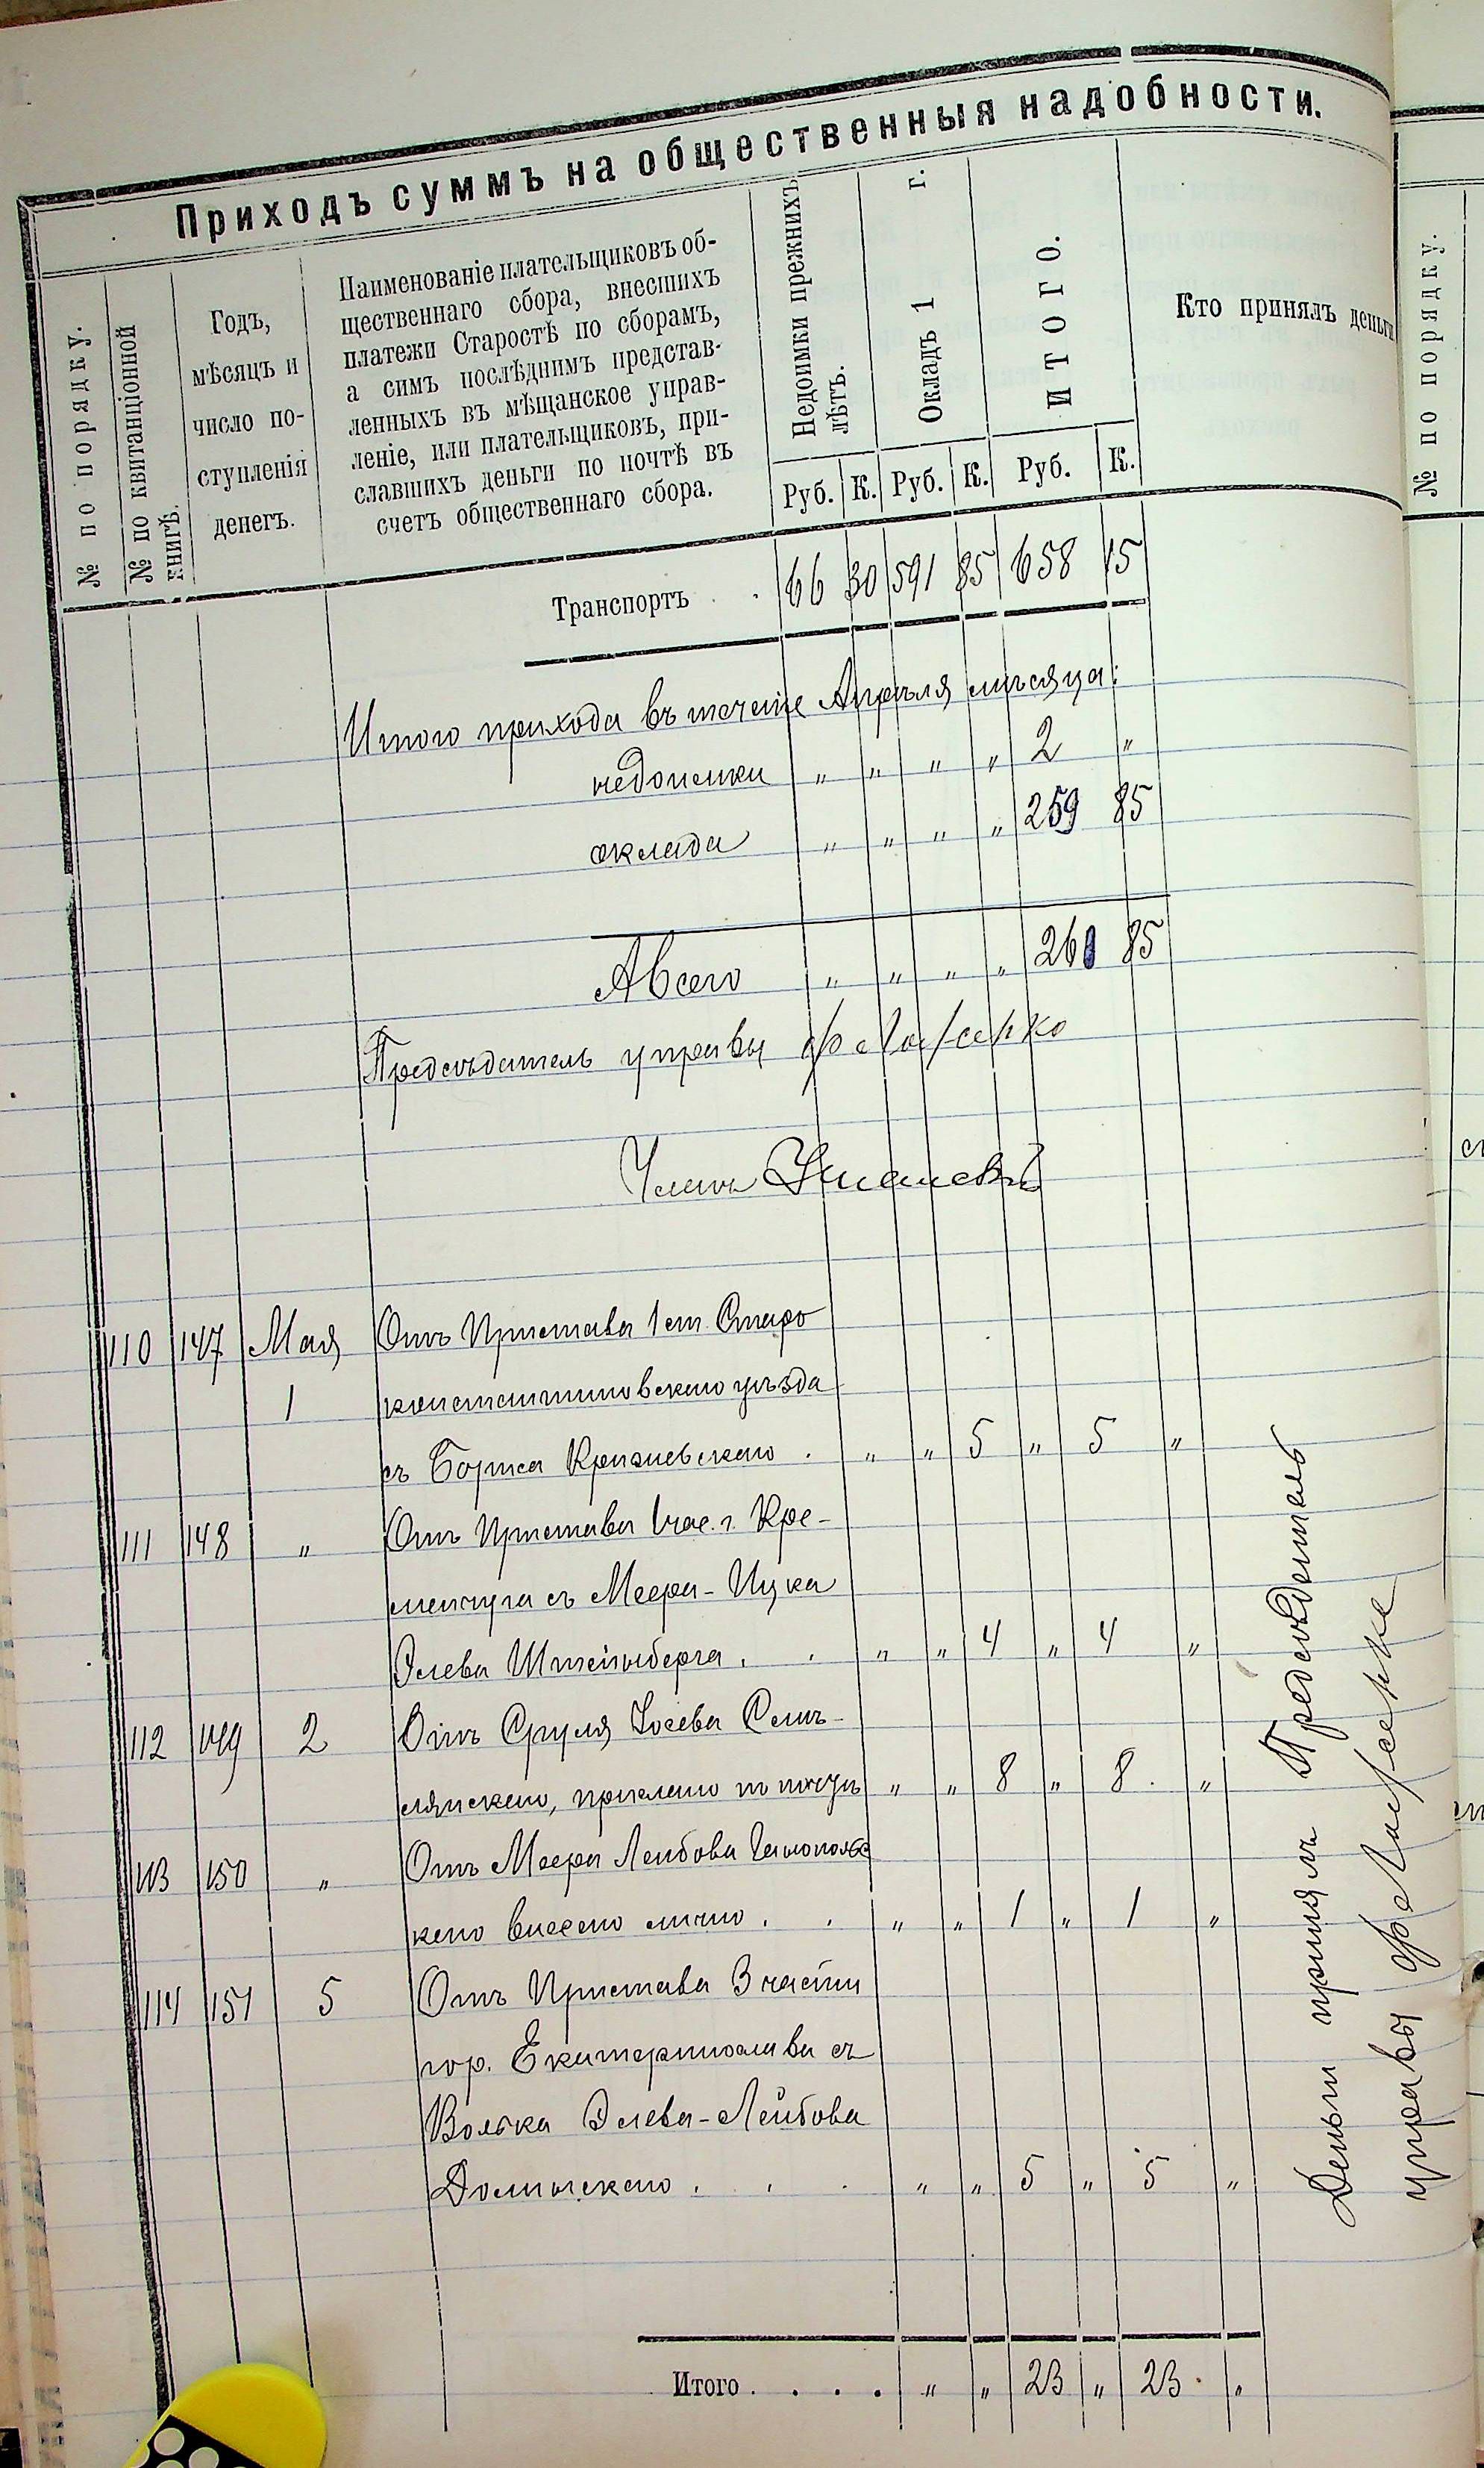 Приходъ суммъ на общественныя надобности.
№ по порядку.
№ по квитанціонной
книгѣ.
Годъ,
мѣсяцъ и
число по-
ступленія
денегъ.
Наименованіе плательщиковъ об-
щественнаго сбора, внесшихъ
платежи Старостѣ по сборамъ,
а симъ послѣднимъ представ-
ленныхъ въ мѣщанское управ-
леніе, или плательщиковъ, при-
славшихъ деньги по почтѣ въ
счетъ общественнаго сбора.
Недоимки прежнихъ
лѣтъ.
Окладъ 1 г.
ИТОГО.
Кто принялъ деньги
Руб. К. Руб. К. Руб. К.
Транспортъ . . 66 30 591 85 658 15
Итого прихода въ теченіе Апрѣля мѣсяца:
недоимки " " " " 2 "
оклада " " " " 259 85
А всего " " " " 261 85
Предсѣдатель управы
Членъ
110 147 Мая Отъ Пристава 1 ст. Старо
1 константиновскаго уѣзда
съ Боруха . " " 5 " 5 "
111 148 " Отъ Пристава 1 час. г. Кре-
менчуга съ Меера-Ицка
Элева Штейнберга . . " " 4 " 4 "
112 149 2 Отъ Сруля Іосева Семъ-
лянскаго, прислано по почтѣ " " 8 " 8 . "
113 150 " Отъ Меера Лейбова
кого внесено лично . . " " 1 " 1 "
114 151 5 Отъ Пристава 3 части
гор. Екатеринослава съ
Волька Элева-Лейбова
Долинскаго . . . " " 5 " 5 "
Деньги принялъ Предсѣдатель
управы
Итого . . . . " " 23 " 23 . "
№ по порядку.